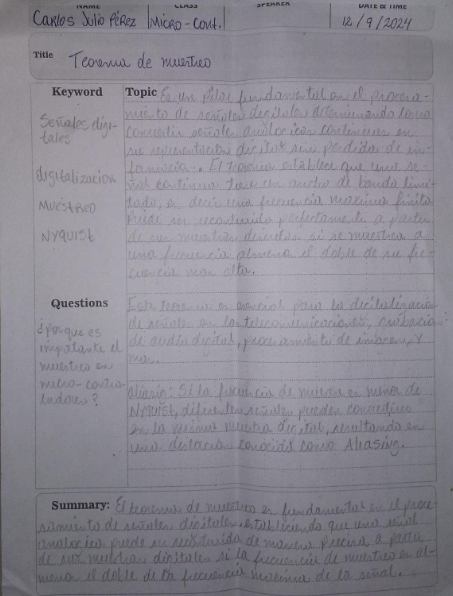 NAME CLASS SPEAKER DATE & TIME
Carlos Julio Pérez Micro-Cont. 12/9/2024
Title Teorema de muestreo
Keyword
Señales digi-
tales
digitalización
MUESTREO
NYQUIST
Topic Es un pilar fundamental en el procesa-
miento de señales digitales determinando como
convertir señales analogicas continuas en
su representación digital sin perdidas de in-
formación. El teorema establece que una se-
ñal continua tiene un ancho de banda limi-
tado, es decir una frecuencia maxima finita
Puede ser reconstruida perfectamente a partir
de sus muestras discretas si se muestrea a
una frecuencia almenos el doble de su fre-
cuencia mas alta.
Questions
¿porque es
importante el
muestreo en
micro-contro-
ladores?
Este teorema es esencial para la digitalización
de señales en las telecomunicaciones,
de audio digital, procesamiento de imagenes, y
mas.
aliasing: Si la frecuencia de muestreo es menor de
Nyquist, diferentes señales pueden convertirse
en la misma muestra digital, resultando en
una distorsión conocida como Aliasing.
Summary: El teorema de muestreo es fundamental en el proce-
samiento de señales digitales, estableciendo que una señal
analogica puede ser reconstruida de manera precisa a partir
de sus muestras digitales si la frecuencia de muestreo es al-
menos el doble de la frecuencia maxima de la señal.